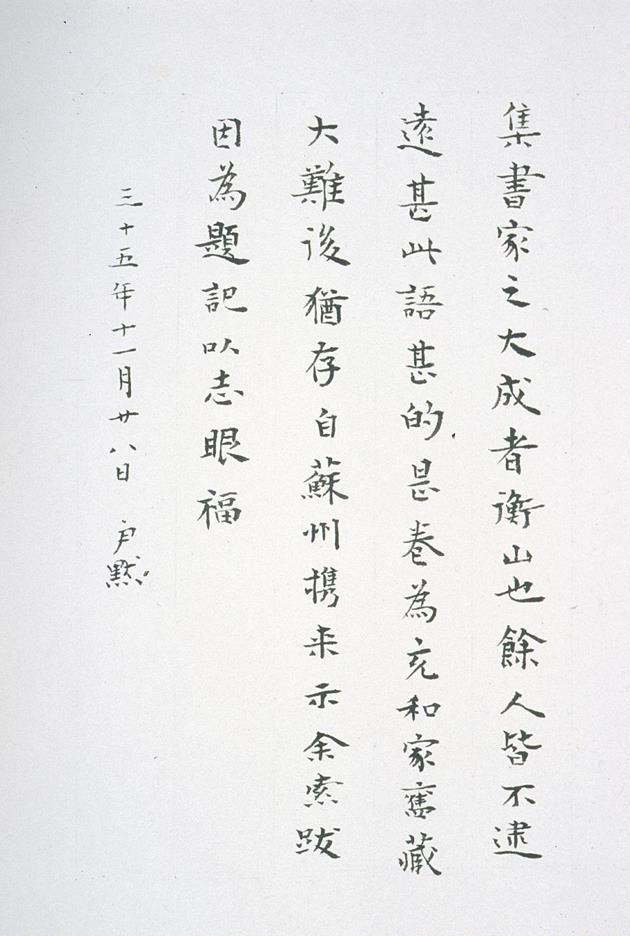 集書家之大成者衡山也餘人皆不逮
遠甚此語甚的是卷為充和家舊藏
大難後猶存自蘇州携来示余索跋
因為題記以志眼福
三十五年十一月廿八日 尹默